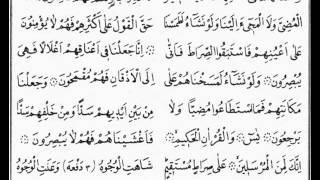 الْمُضِيَّ وَلَا الْمَجِيَّ اِلَيْنَا وَلَوْ نَشَاءُ لَطَمَسْنَا
عَلٰى اَعْيُنِهِمْ فَاسْتَبَقُوا الصِّرَاطَ فَاَنّٰى
يُبْصِرُونَ ۞ وَلَوْ نَشَاءُ لَمَسَخْنَاهُمْ عَلٰى
مَكَانَتِهِمْ فَمَا اسْتَطَاعُوا مُضِيًّا وَلَا
يَرْجِعُونَ ۞ يٰسٓ ۞ وَالْقُرْاٰنِ الْحَكِيمِ ۞
اِنَّكَ لَمِنَ الْمُرْسَلِينَ ۞ عَلٰى صِرَاطٍ مُسْتَقِيمٍ
حَقَّ الْقَوْلُ عَلٰى اَكْثَرِهِمْ فَهُمْ لَا يُؤْمِنُونَ
۞ اِنَّا جَعَلْنَا فِى اَعْنَاقِهِمْ اَغْلَالًا فَهِىَ
اِلَى الْاَذْقَانِ فَهُمْ مُقْمَحُونَ ۞ وَجَعَلْنَا
مِنْ بَيْنِ اَيْدِيهِمْ سَدًّا وَمِنْ خَلْفِهِمْ سَدًّا
فَاَغْشَيْنَاهُمْ فَهُمْ لَا يُبْصِرُونَ ۞
شَاهَتِ الْوُجُوهُ (٣ دفعه) وَعَنَتِ الْوُجُوهُ